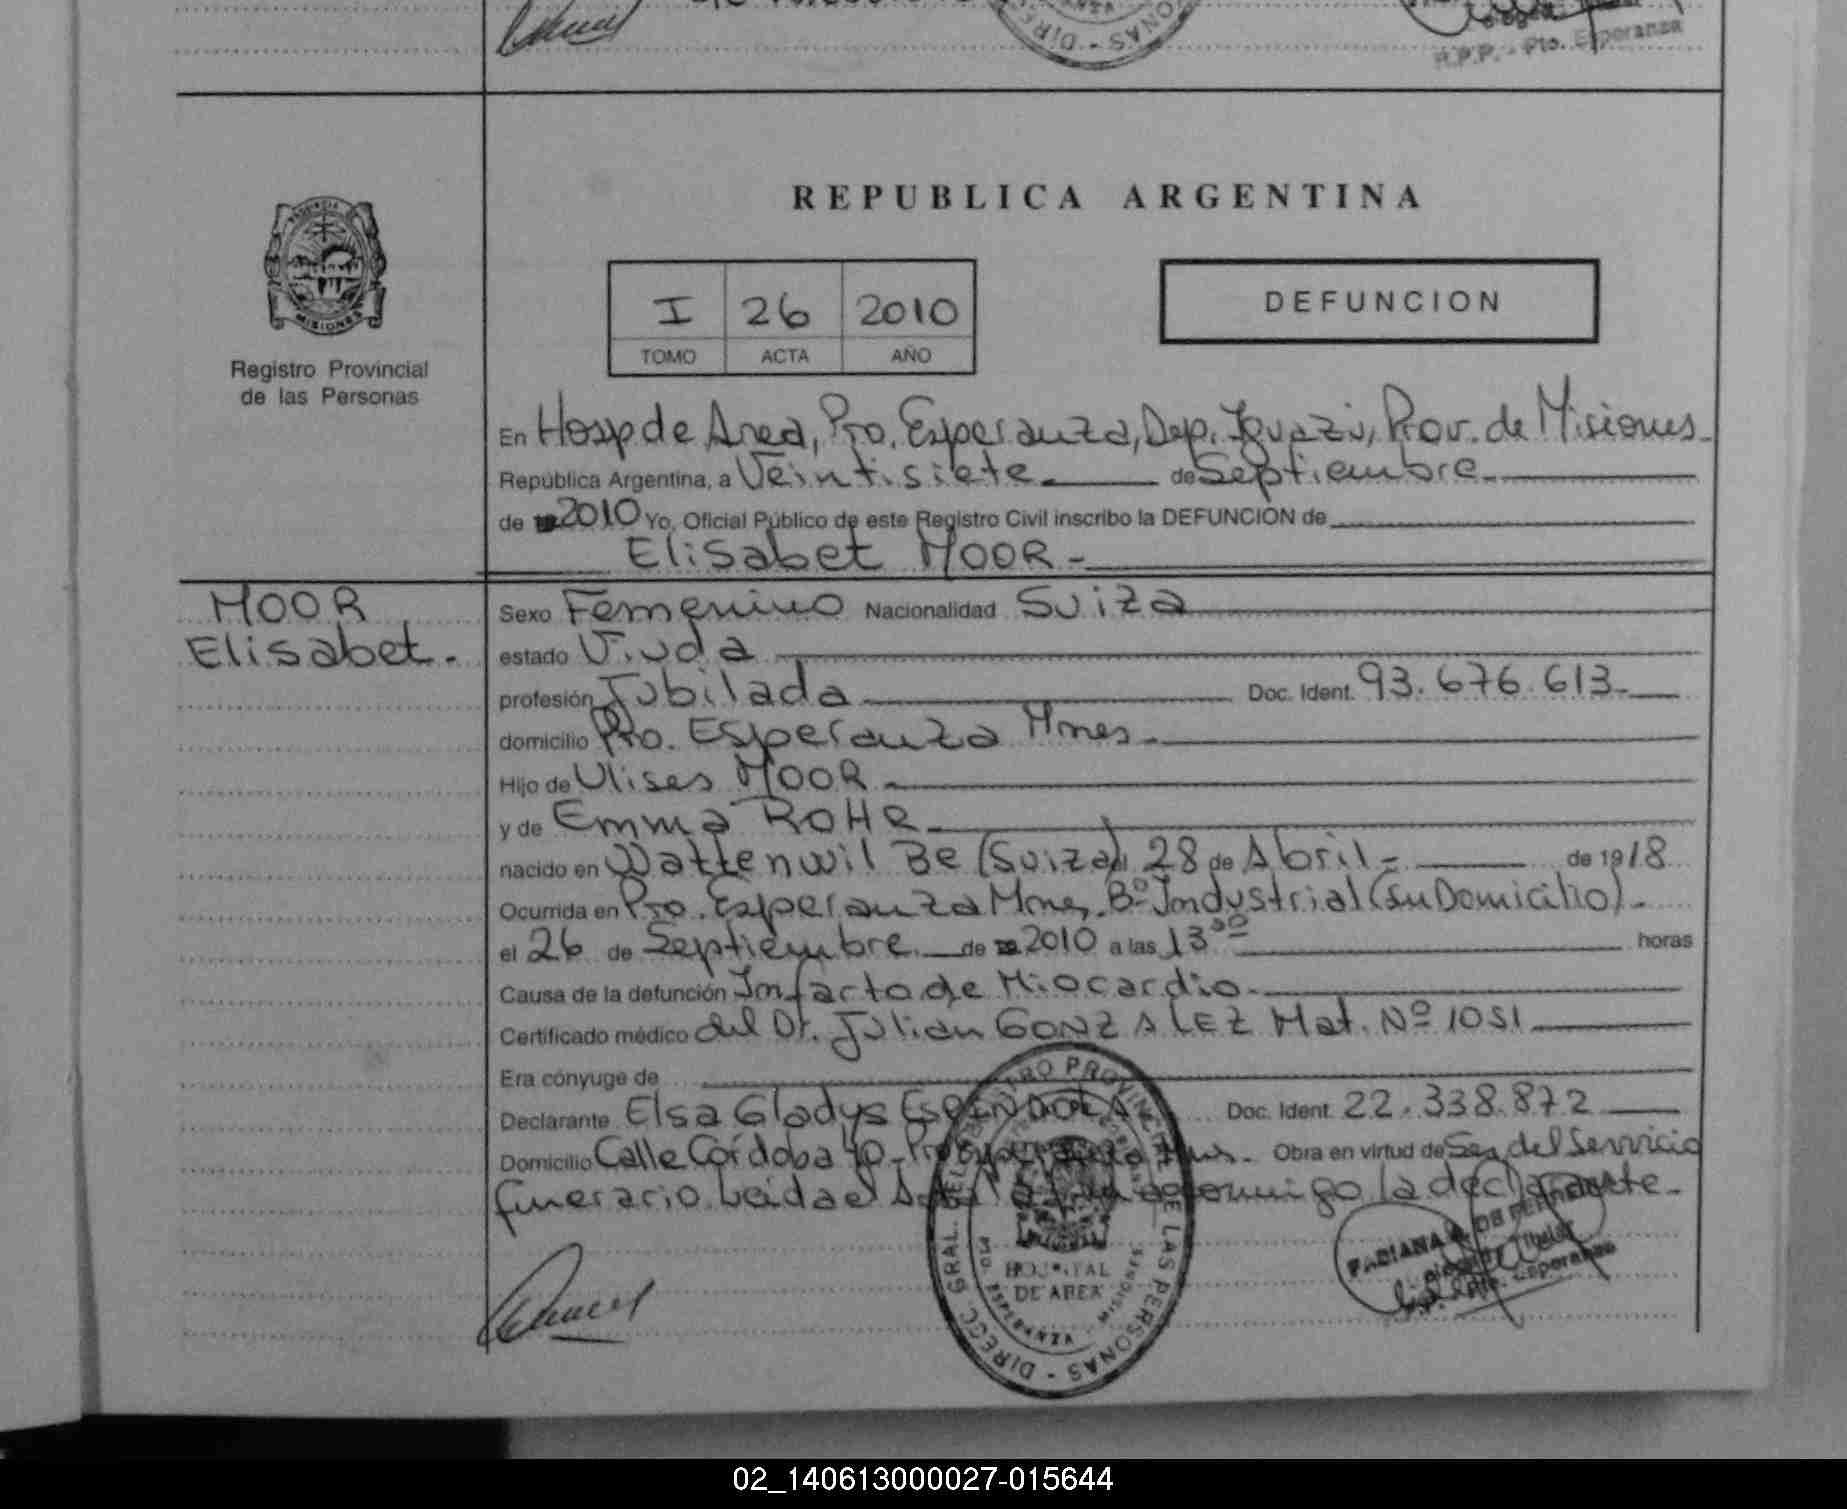 R.P.P. - Pto. Esperanza
REPUBLICA ARGENTINA
I 26 2010
TOMO ACTA AÑO
DEFUNCION
PROVINCIA DE
MISIONES
Registro Provincial
de las Personas
En Hosp de Area, Pto. Esperanza, Dep. Iguazú, Prov. de Misiones
República Argentina, a Veintisiete de Septiembre
de 2010 Yo, Oficial Público de este Registro Civil inscribo la DEFUNCION de
Elisabet MOOR -
MOOR
Elisabet -
Sexo Femenino Nacionalidad Suiza
estado Viuda
profesión Jubilada Doc. Ident. 93.676.613
domicilio Pto. Esperanza Mnes -
Hijo de Ulises MOOR
y de Emma ROHR
nacido en Wattenwil Be (Suiza) el 28 de Abril - de 1918
Ocurrida en Pto. Esperanza Mnes, Bº Industrial (su Domicilio) -
el 26 de Septiembre de 2010 a las 13 horas
Causa de la defunción Infarto de Miocardio
Certificado médico del Dr. Julian GONZALEZ Mat. Nº 1051
Era cónyuge de
Declarante Elsa Gladys ESPINDOLA Doc. Ident. 22.338.872
Domicilio Calle Córdoba 40 - Pto Esperanza Mns. Obra en virtud de Ser del Servicio
funerario. Leida el Acta la firma conmigo la declarante -
DIRECC. GRAL. DEL REGISTRO PROVINCIAL DE LAS PERSONAS
HOSPITAL
DE AREA
PTO. ESPERANZA - MISIONES
FABIANA DE
Titular
R.P.P. Pto. Esperanza
02_140613000027-015644